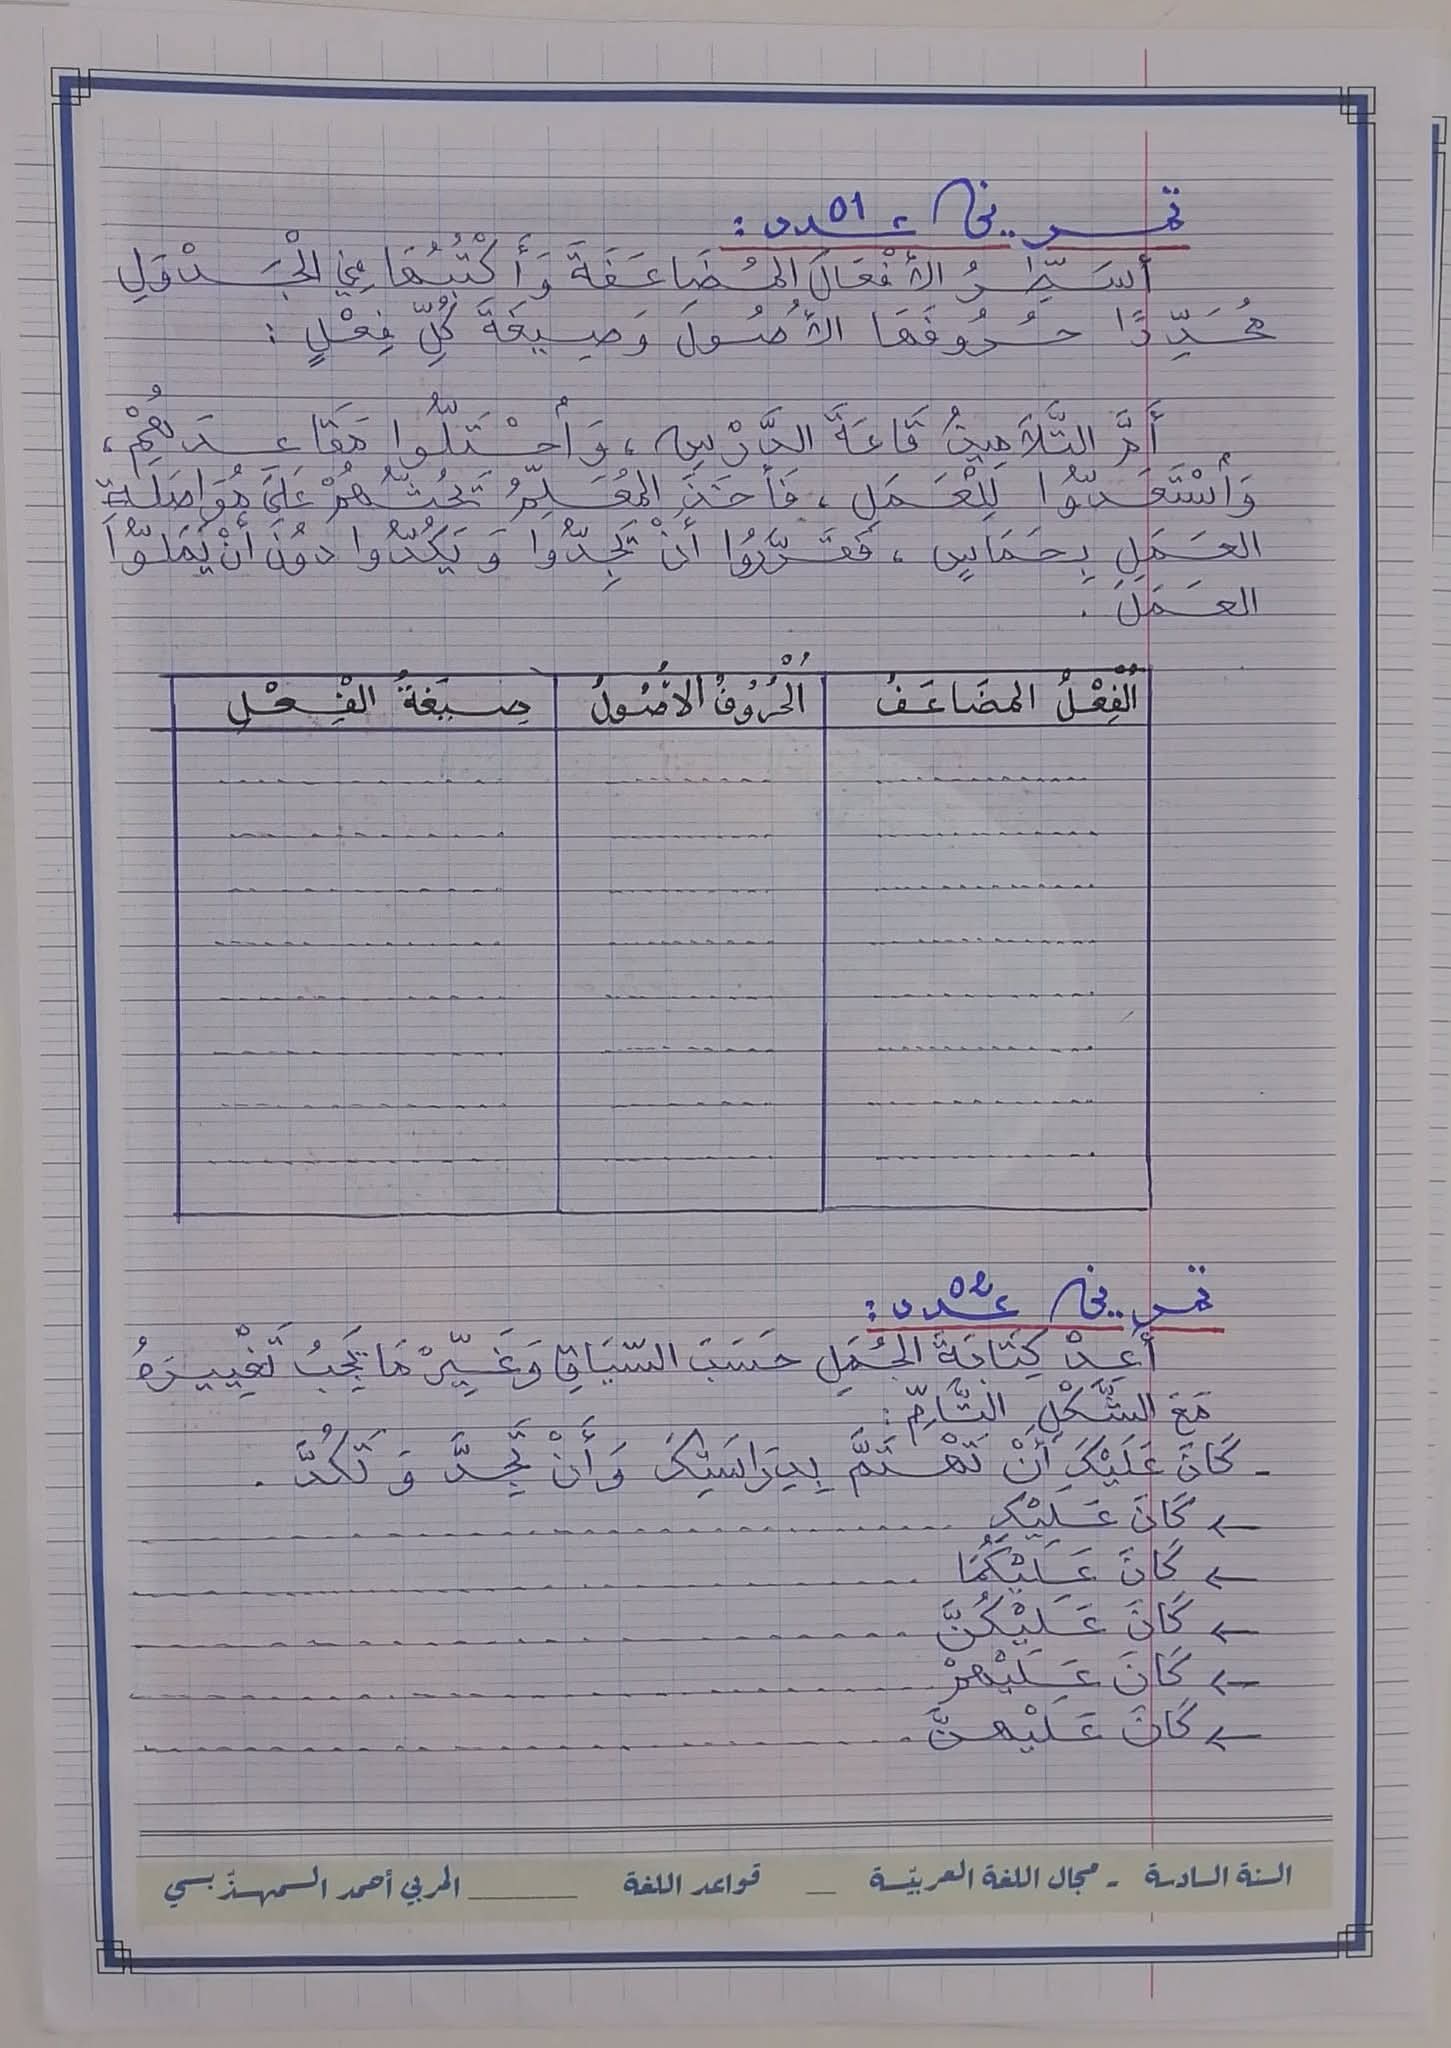 تمرين عدد 01:
أُسَطِّرُ الأَفْعَالَ المُضَاعَفَةَ وَأَكْتُبُهَا فِي الْجَدْوَلِ
مُحَدِّدًا حُرُوفَهَا الأُصُولَ وَصِيغَةَ كُلِّ فِعْلٍ :
أَمَّ التَّلَامِيذُ قَاعَةَ الدَّرْسِ ، وَاحْتَلُّوا مَقَاعِدَهُمْ ،
وَاسْتَعَدُّوا لِلْعَمَلِ ، فَأَخَذَ المُعَلِّمُ يَحُثُّهُمْ عَلَى مُوَاصَلَةِ
العَمَلِ بِحَمَاسٍ ، فَقَرَّرُوا أَنْ يَجِدُّوا وَ يَكُدُّوا دُونَ أَنْ يَمَلُّوا
العَمَلَ .
الْفِعْلُ المضَاعَفُ | الْحُرُوفُ الأُصُولُ | صِيغَةُ الْفِعْلِ
تمرين عدد 02:
أُعِدْ كِتَابَةَ الجُمَلِ حَسَبَ السِّيَاقِ وَغَيِّرْ مَا يَجِبُ تَغْيِيرَهُ
مَعَ الشَّكْلِ التَّامِّ :
- كَانَ عَلَيْكَ أَنْ تَهْتَمَّ بِدِرَاسَتِكَ وَأَنْ تَجِدَّ وَ تَكُدَّ .
← كَانَ عَلَيْكِ
← كَانَ عَلَيْكُمَا
← كَانَ عَلَيْكُنَّ
← كَانَ عَلَيْهِمْ
← كَانَ عَلَيْهِنَّ
السنة السادسة - مجال اللغة العربيّة _ قواعد اللغة ______ المربي أحمد السمهدّبسي